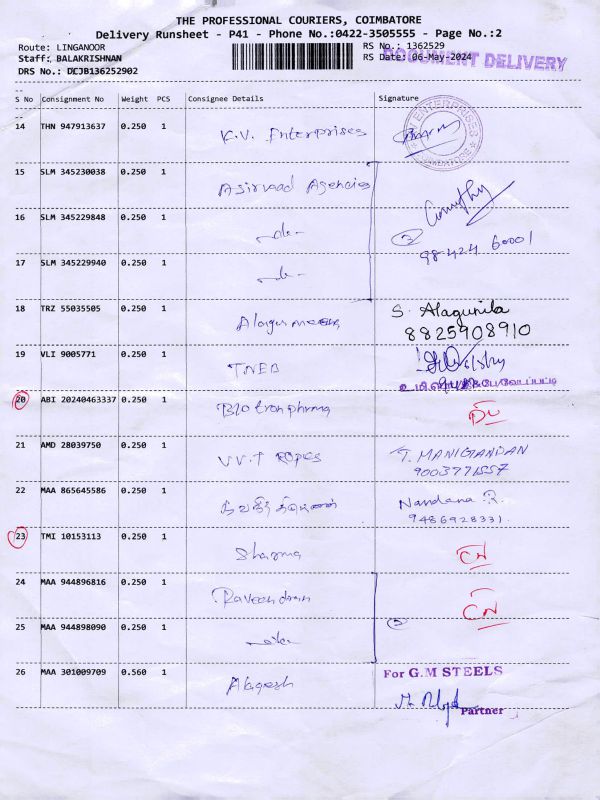 THE PROFESSIONAL COURIERS, COIMBATORE
Delivery Runsheet - P41 - Phone No.:0422-3505555 - Page No.:2
Route: LINGANOOR
RS No.: 1362529
Staff: BALAKRISHNAN
RS Date: 06-May-2024
DOCUMENT DELIVERY
DRS No.: DCJB136252902
S No Consignment No Weight PCS Consignee Details Signature
14 THN 947913637 0.250 1 K.V. Enterprises
ENTERPRISES COIMBATORE
15 SLM 345230038 0.250 1 Asirvaad Agencies
16 SLM 345229848 0.250 1 -do-
3
98424 60001
17 SLM 345229940 0.250 1
18 TRZ 55035505 0.250 1
S. Alagunila
8825908910
19 VLI 9005771 0.250 1 TNEB
20 ABI 20240463337 0.250 1 Biotronpharma
21 AMD 28039750 0.250 1 V.V.T ROPES
T. MANIGANDAN
9003771557
22 MAA 865645586 0.250 1
Nandana R.
9486928331.
23 TMI 10153113 0.250 1 Sharma CN
24 MAA 944896816 0.250 1 Raveendran CN
25 MAA 944898090 0.250 1 -do-
2
26 MAA 301009709 0.560 1 Alagesh
For G.M STEELS
Partner